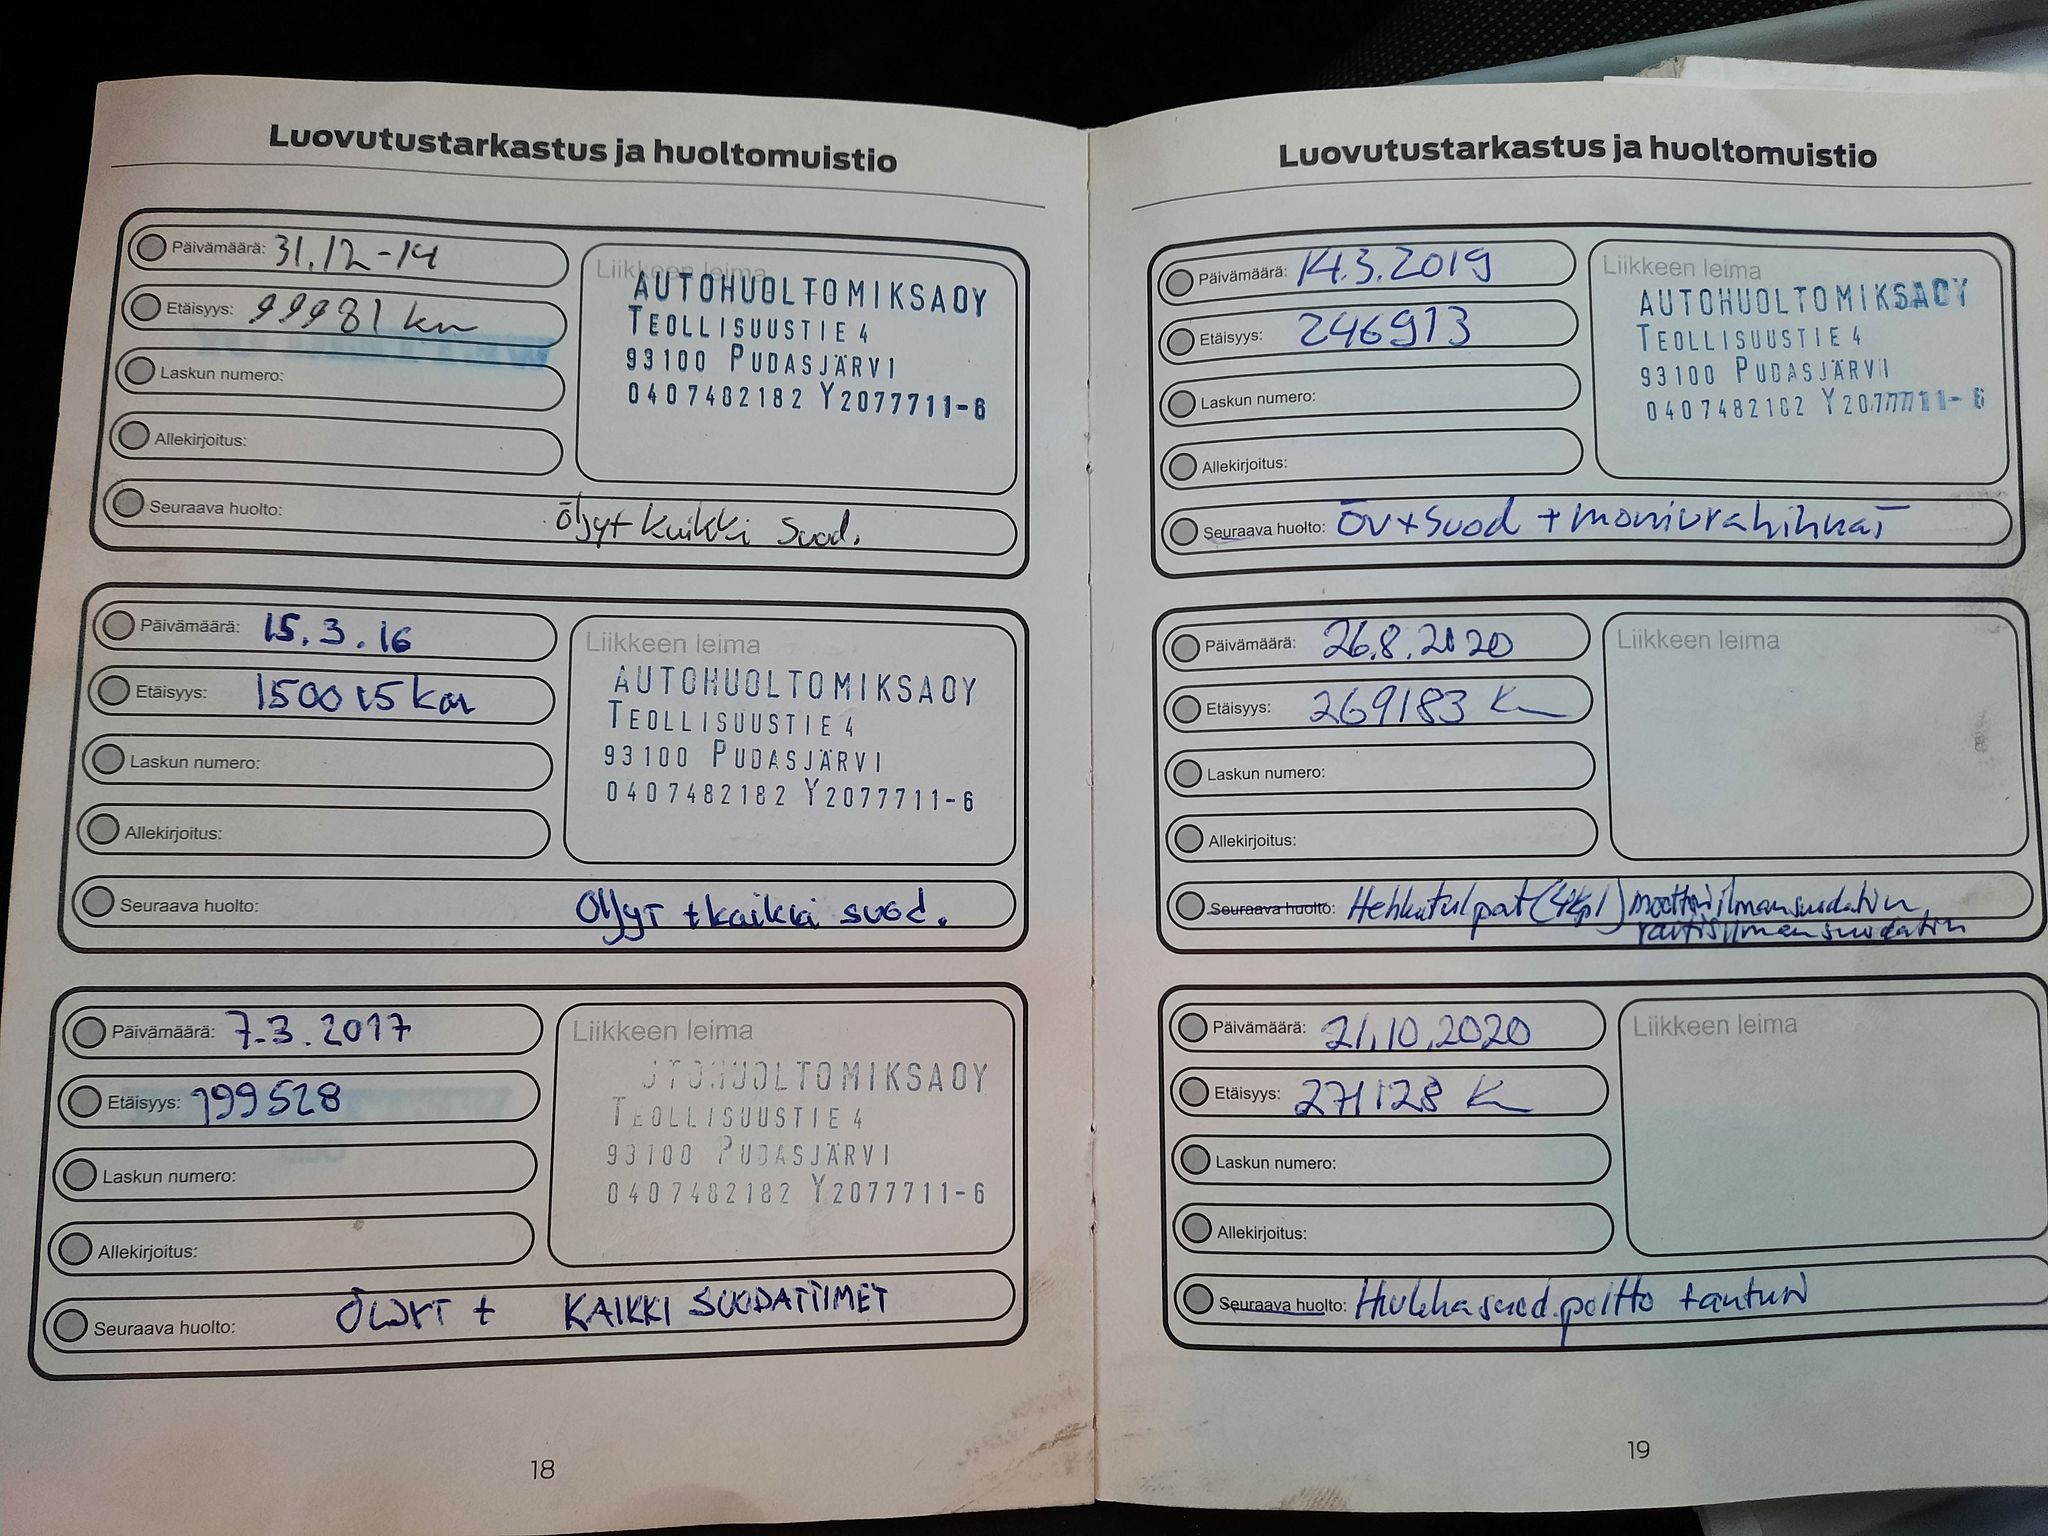 Luovutustarkastus ja huoltomuistio
Päivämäärä: 31.12-14
Etäisyys: 99981 km
Laskun numero:
Allekirjoitus:
Liikkeen leima
AUTOHUOLTOMIKSAOY
TEOLLISUUSTIE 4
93100 PUDASJÄRVI
0407482182 Y2077711-6
Seuraava huolto: öljyt kaikki suod.
Päivämäärä: 15.3.16
Etäisyys: 150015 km
Laskun numero:
Allekirjoitus:
Liikkeen leima
AUTOHUOLTOMIKSAOY
TEOLLISUUSTIE 4
93100 PUDASJÄRVI
0407482182 Y2077711-6
Seuraava huolto: Öljyt + kaikki suod.
Päivämäärä: 7.3.2017
Etäisyys: 199528
Laskun numero:
Allekirjoitus:
Liikkeen leima
UTOHUOLTOMIKSAOY
TEOLLISUUSTIE 4
93100 PUDASJÄRVI
0407482182 Y2077711-6
Seuraava huolto: ÖLJYT + KAIKKI SUODATTIMET
18
Luovutustarkastus ja huoltomuistio
Päivämäärä: 14.3.2019
Etäisyys: 246913
Laskun numero:
Allekirjoitus:
Liikkeen leima
AUTOHUOLTOMIKSAOY
TEOLLISUUSTIE 4
93100 PUDASJÄRVI
0407482182 Y2077711-6
Seuraava huolto: ÖV + suod + moniurahihnat
Päivämäärä: 26.8.2020
Etäisyys: 269183 Km
Laskun numero:
Allekirjoitus:
Liikkeen leima
Seuraava huolto: Hehkutulpat (4kpl) moottoriilmansuodatin
raitisilmansuodatin
Päivämäärä: 21.10.2020
Etäisyys: 271128 Km
Laskun numero:
Allekirjoitus:
Liikkeen leima
Seuraava huolto: Hiukkassuod. poltto
19